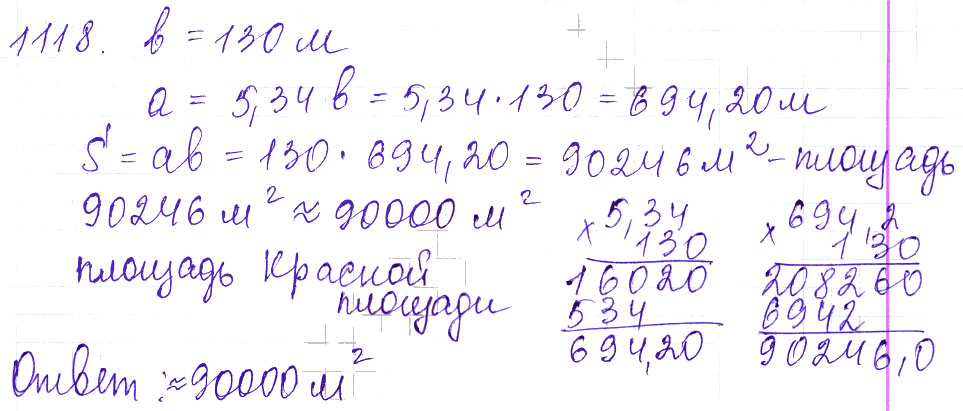 1118. в = 130 м
а = 5,34 в = 5,34 · 130 = 694,20 м
S = ав = 130 · 694,20 = 90246 м² - площадь
90246 м² ≈ 90000 м²
площадь Красной
площади
× 5,34
130
16020
534
694,20
× 694,2
130
208260
6942
90246,0
Ответ: ≈90000 м²